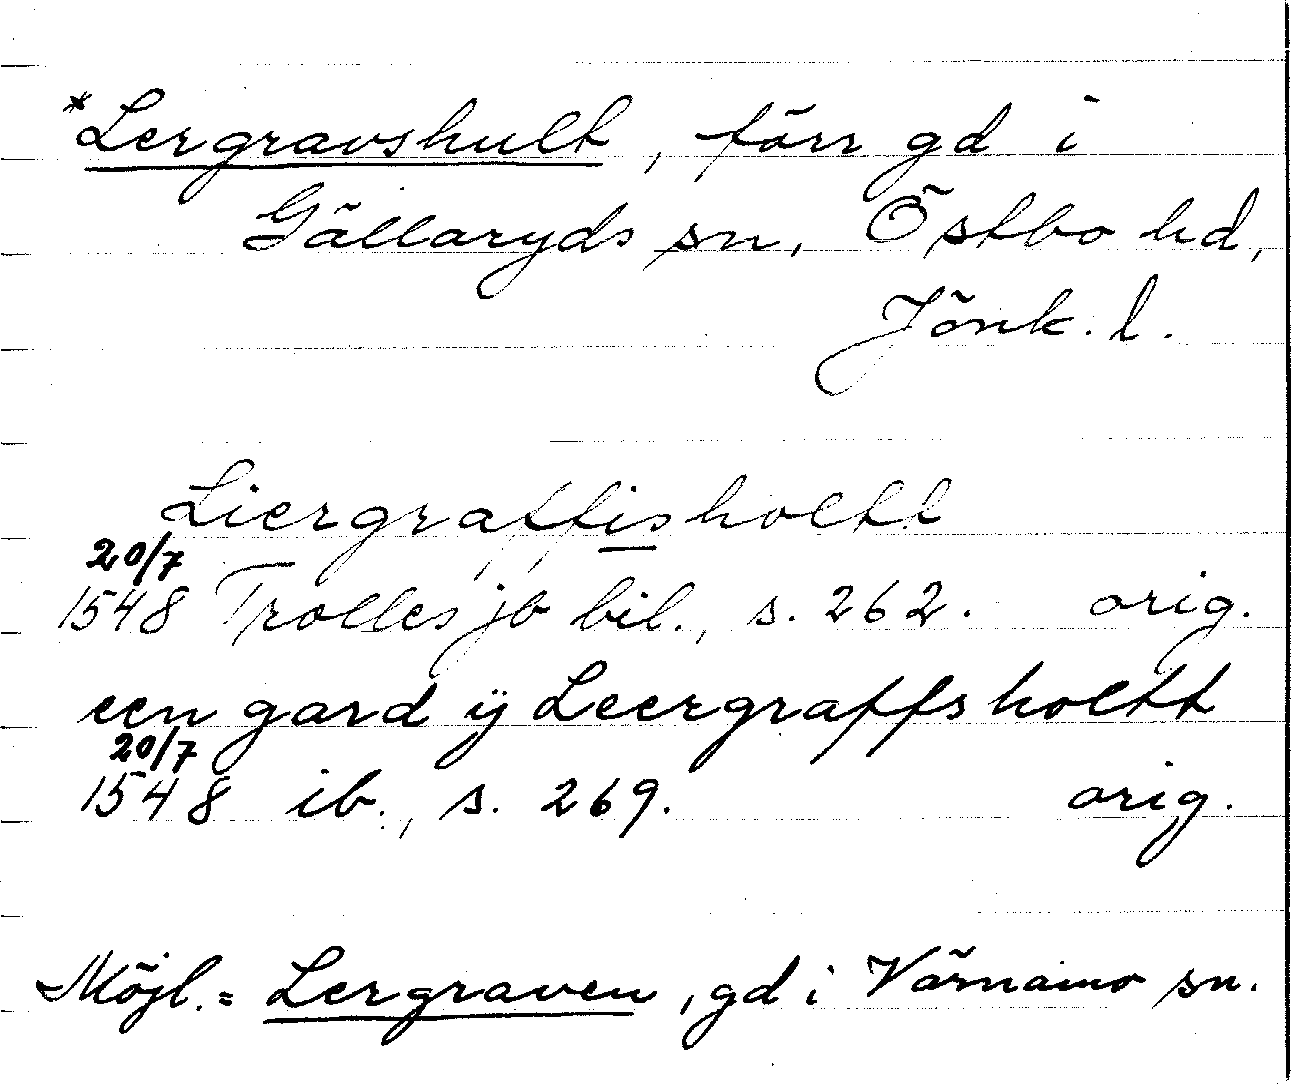 *Lergravshult, förr gd i
Gällaryds sn, Östbo hd,
Jönk. l.
Liergraffisholtt
20/7
1548 Trolles jb bil., s. 262. orig.
een gard ÿ Leergraffsholtt
20/7
1548 ib., s. 269. orig.
Möjl. = Lergraven, gd i Värnamo sn.